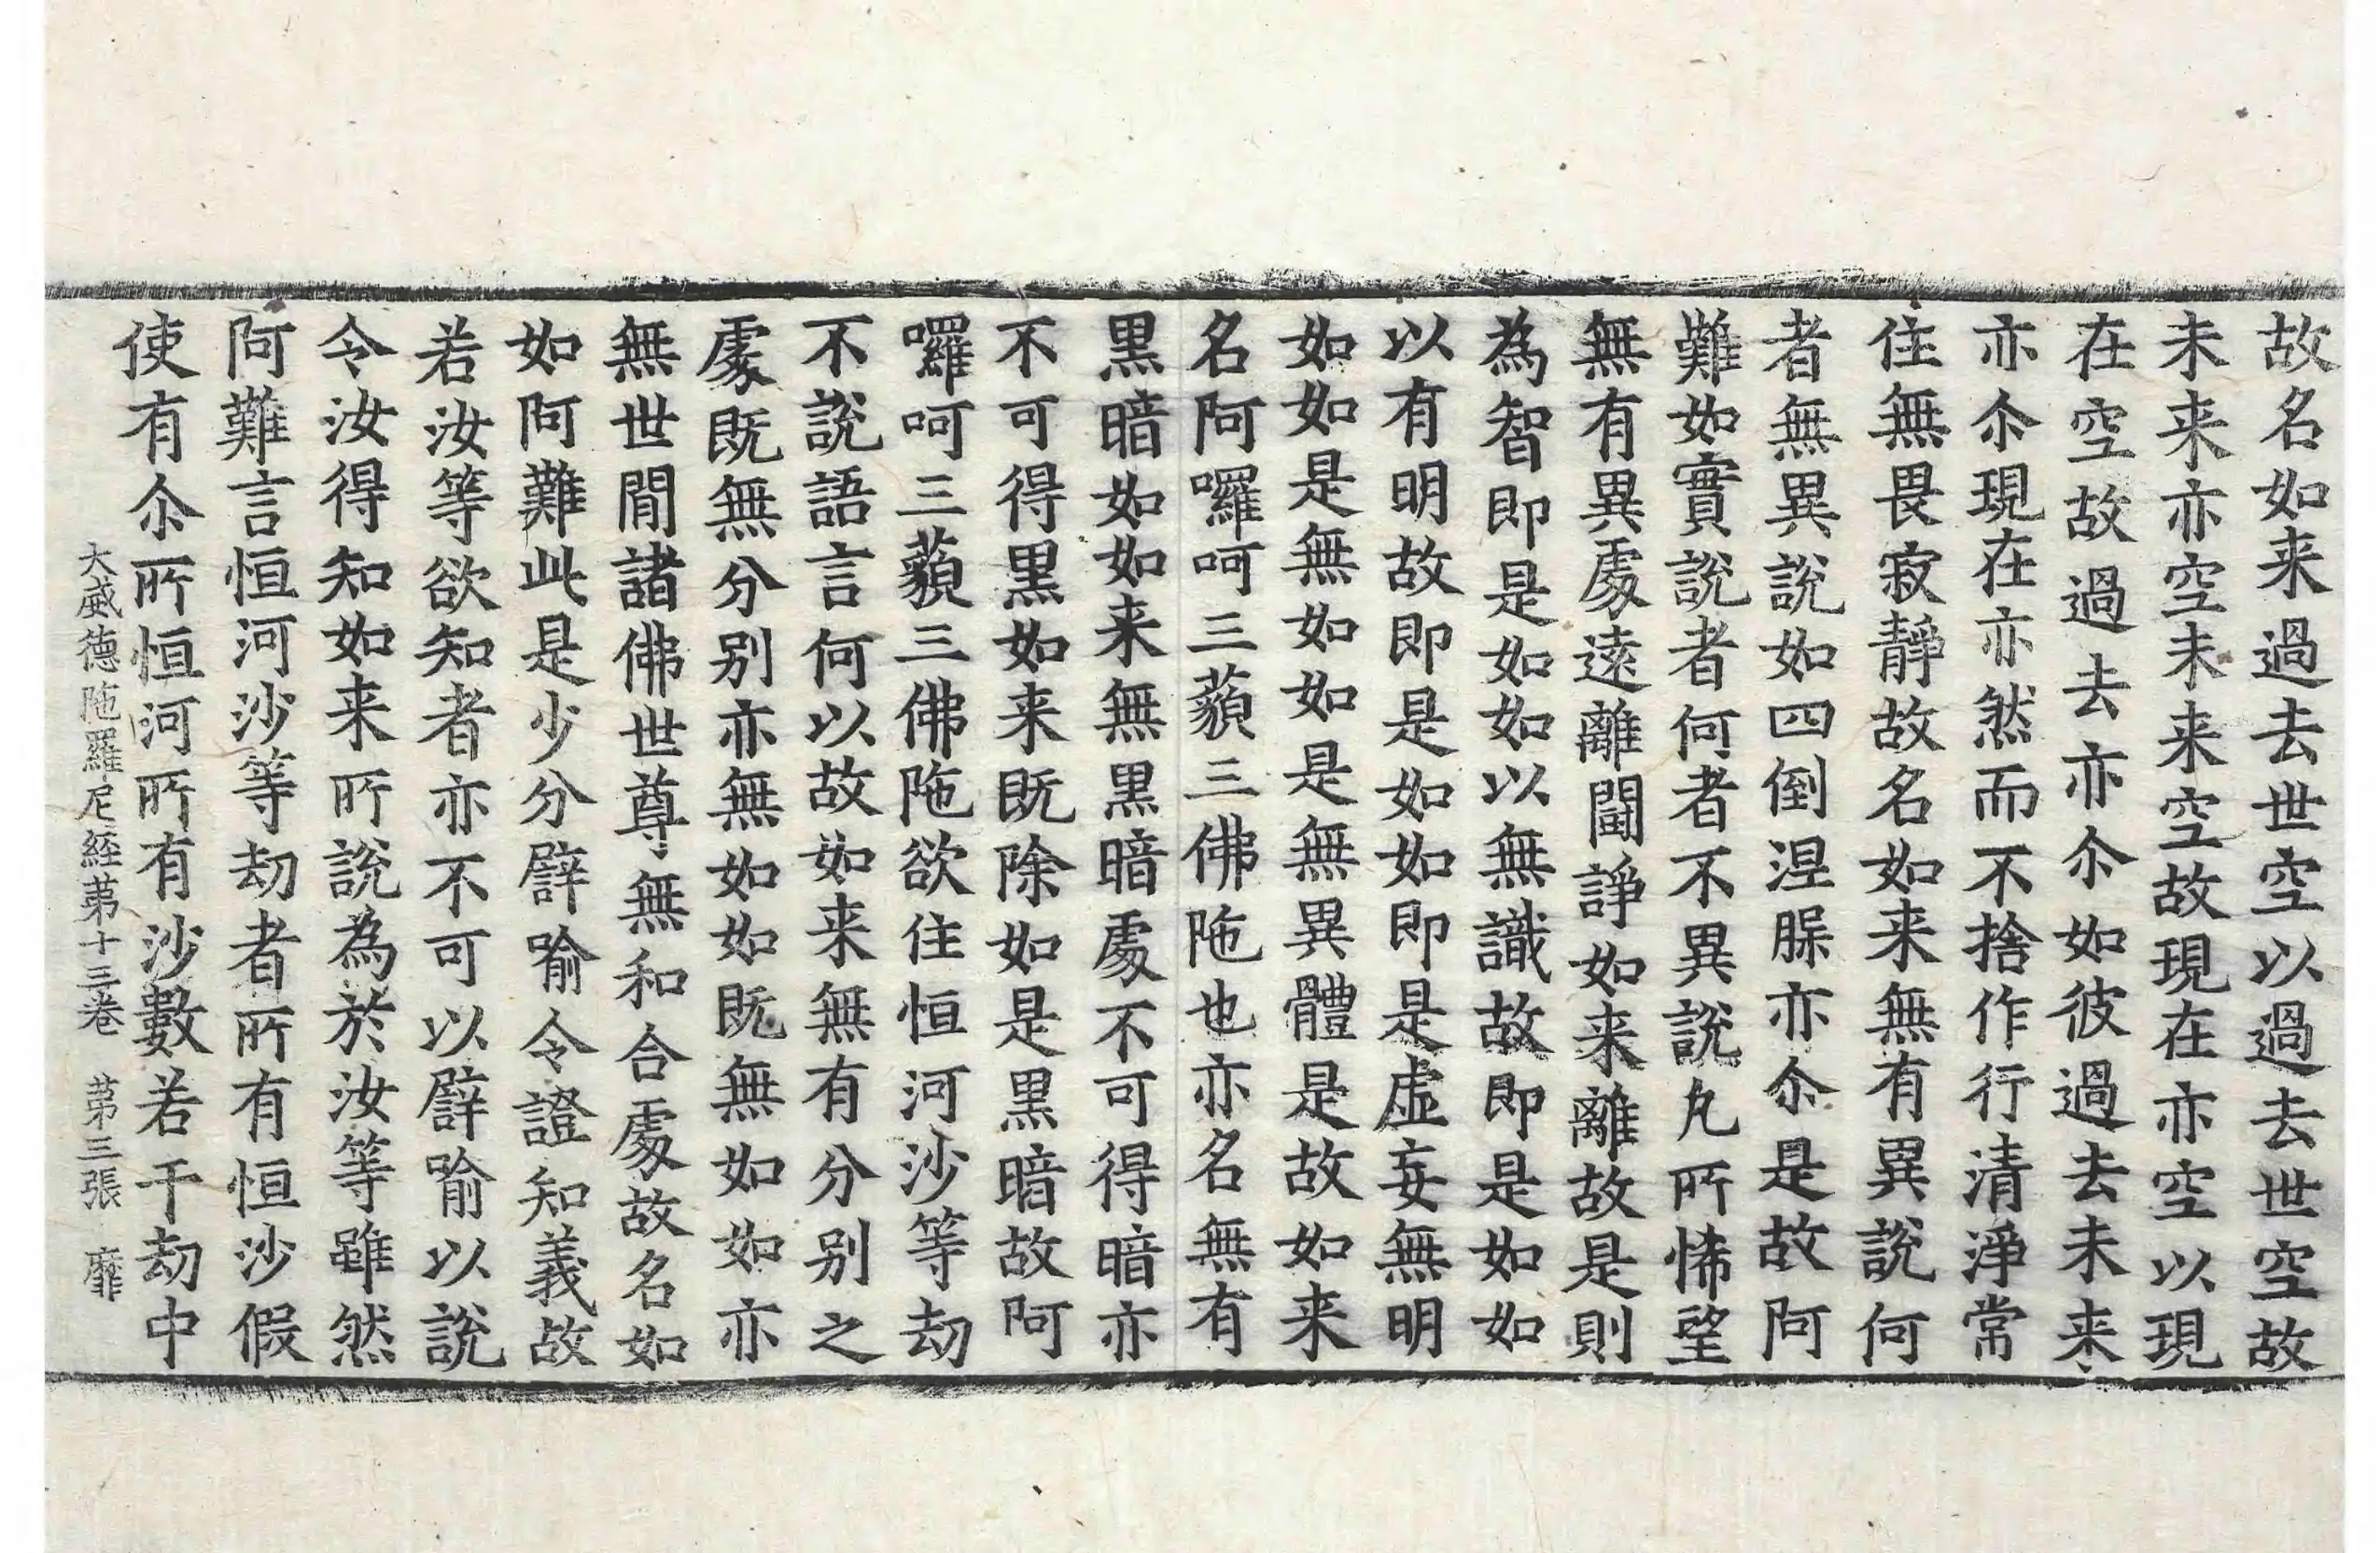 故名如来過去世空以過去世空故
未来亦空未来空故現在亦空以現
在空故過去亦尒如彼過去未来
亦尒現在亦然而不捨作行清淨常
住無畏寂靜故名如来無有異說何
者無異說如四倒涅槃亦尒是故阿
難如實說者何者不異說凡所悕望
無有異處遠離鬪諍如来離故是則
為智即是如如以無識故即是如如
以有明故即是如如即是虛妄無明
如如是無如如是無異體是故如来
名阿囉呵三藐三佛陁也亦名無有
黒暗如如来無黒暗處不可得暗亦
不可得黒如来既除如是黒暗故阿
囉呵三藐三佛陁欲住恒河沙等劫
不說語言何以故如来無有分别之
處既無分别亦無如如既無如如亦
無世間諸佛世尊無和合處故名如
如阿難此是少分譬喻令證知義故
若汝等欲知者亦不可以譬喻以說
令汝得知如来所說為於汝等雖然
阿難言恒河沙等劫者所有恒沙假
使有尒所恒河所有沙數若干劫中
大威德陁羅尼経苐十三卷 苐三張 靡